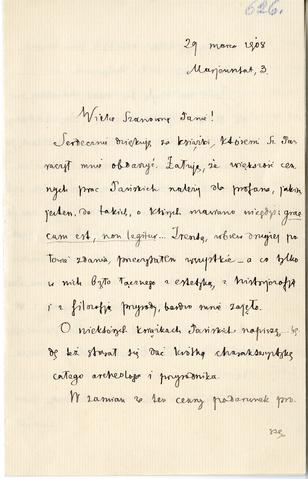 626.
29 marca 1908
Marjensztat, 3.
Wielce Szanowny Panie!
Serdecznie dziękuję za książki, któremi Sz. Pan
raczył mnie obdarzyć. Żałuję, że większość cen-
nych prac Pańskich należy dla profana, jakim
jestem, do takich, o których mawiano niegdyś: grae-
cum est, non legitur... Zresztą, wbrew drugiej po-
łowie zdania, przeczytałem wszystkie – a co tylko
w nich było łącznego z estetyką, z historjozofją
i z filozofją przyrody, bardzo mnie zajęło.
O niektórych książkach Pańskich napiszę... bę-
dę też starał się dać krótką charakterystykę
całego archeologa i przyrodnika.
W zamian za ten cenny podarunek pro-
szę